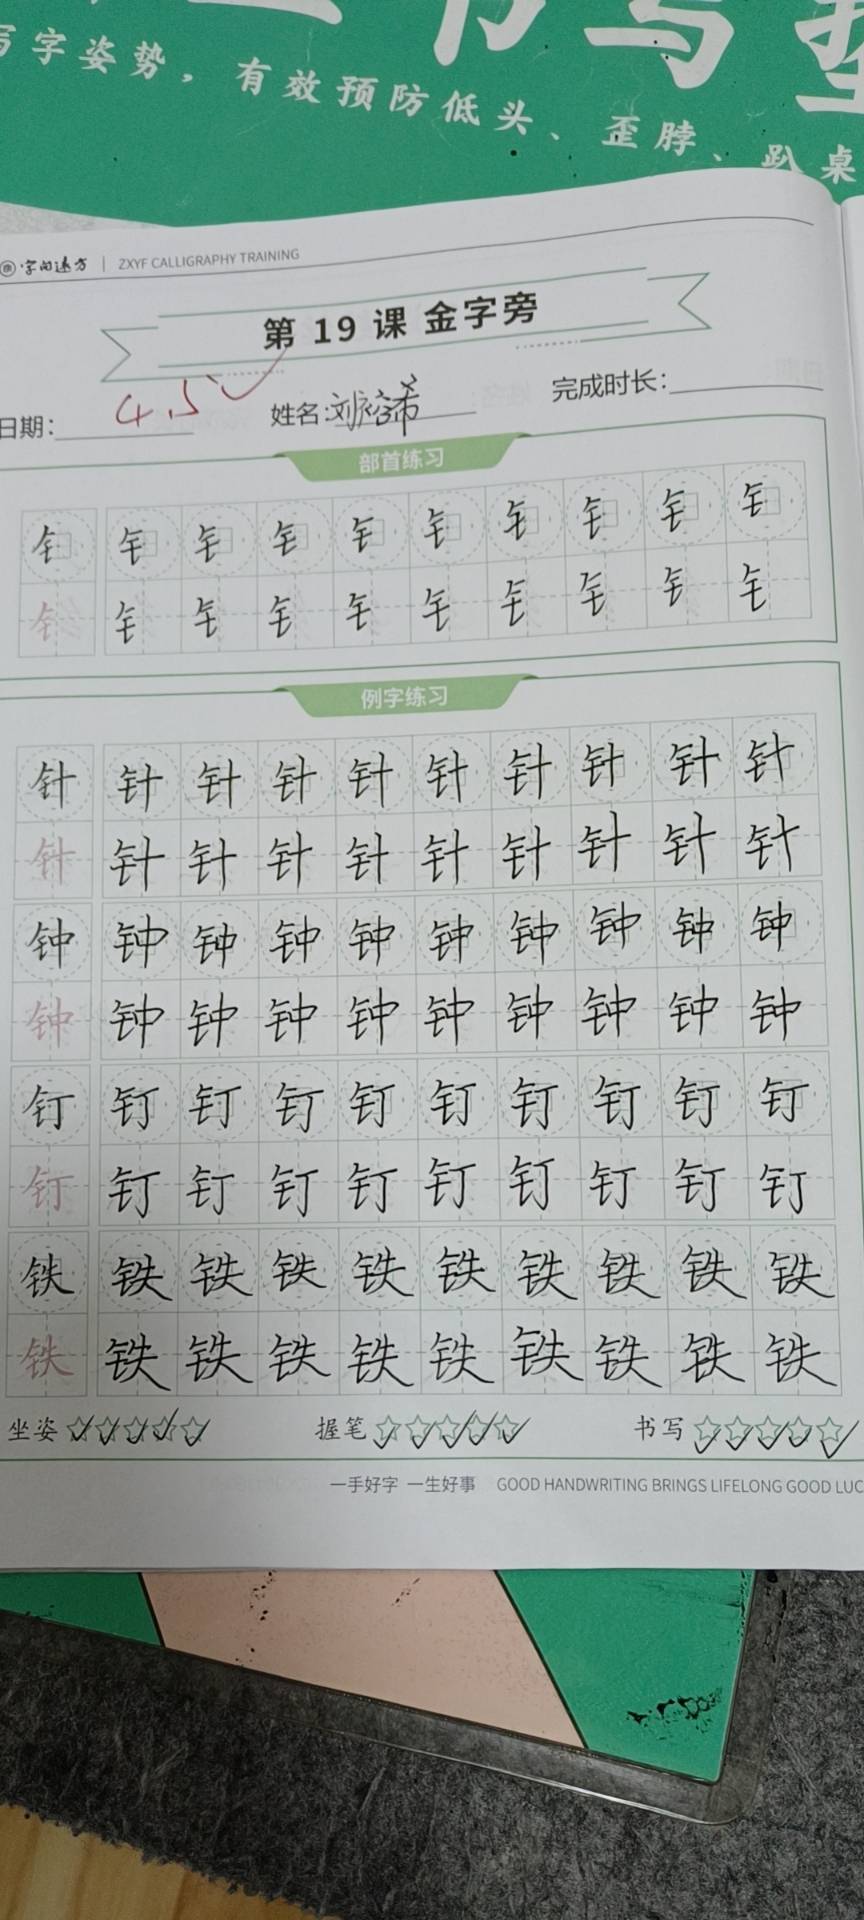 书写垫
写字姿势，有效预防低头、歪脖、趴桌
字向远方 | ZXYF CALLIGRAPHY TRAINING
第 19 课 金字旁
日期： 4.5 姓名：刘裕希 完成时长：
部首练习
钅 钅 钅 钅 钅 钅 钅 钅 钅 钅
钅 钅 钅 钅 钅 钅 钅 钅 钅 钅
例字练习
针 针 针 针 针 针 针 针 针 针
针 针 针 针 针 针 针 针 针 针
钟 钟 钟 钟 钟 钟 钟 钟 钟 钟
钟 钟 钟 钟 钟 钟 钟 钟 钟 钟
钉 钉 钉 钉 钉 钉 钉 钉 钉 钉
钉 钉 钉 钉 钉 钉 钉 钉 钉 钉
铁 铁 铁 铁 铁 铁 铁 铁 铁 铁
铁 铁 铁 铁 铁 铁 铁 铁 铁 铁
坐姿 握笔 书写
一手好字 一生好事 GOOD HANDWRITING BRINGS LIFELONG GOOD LUC